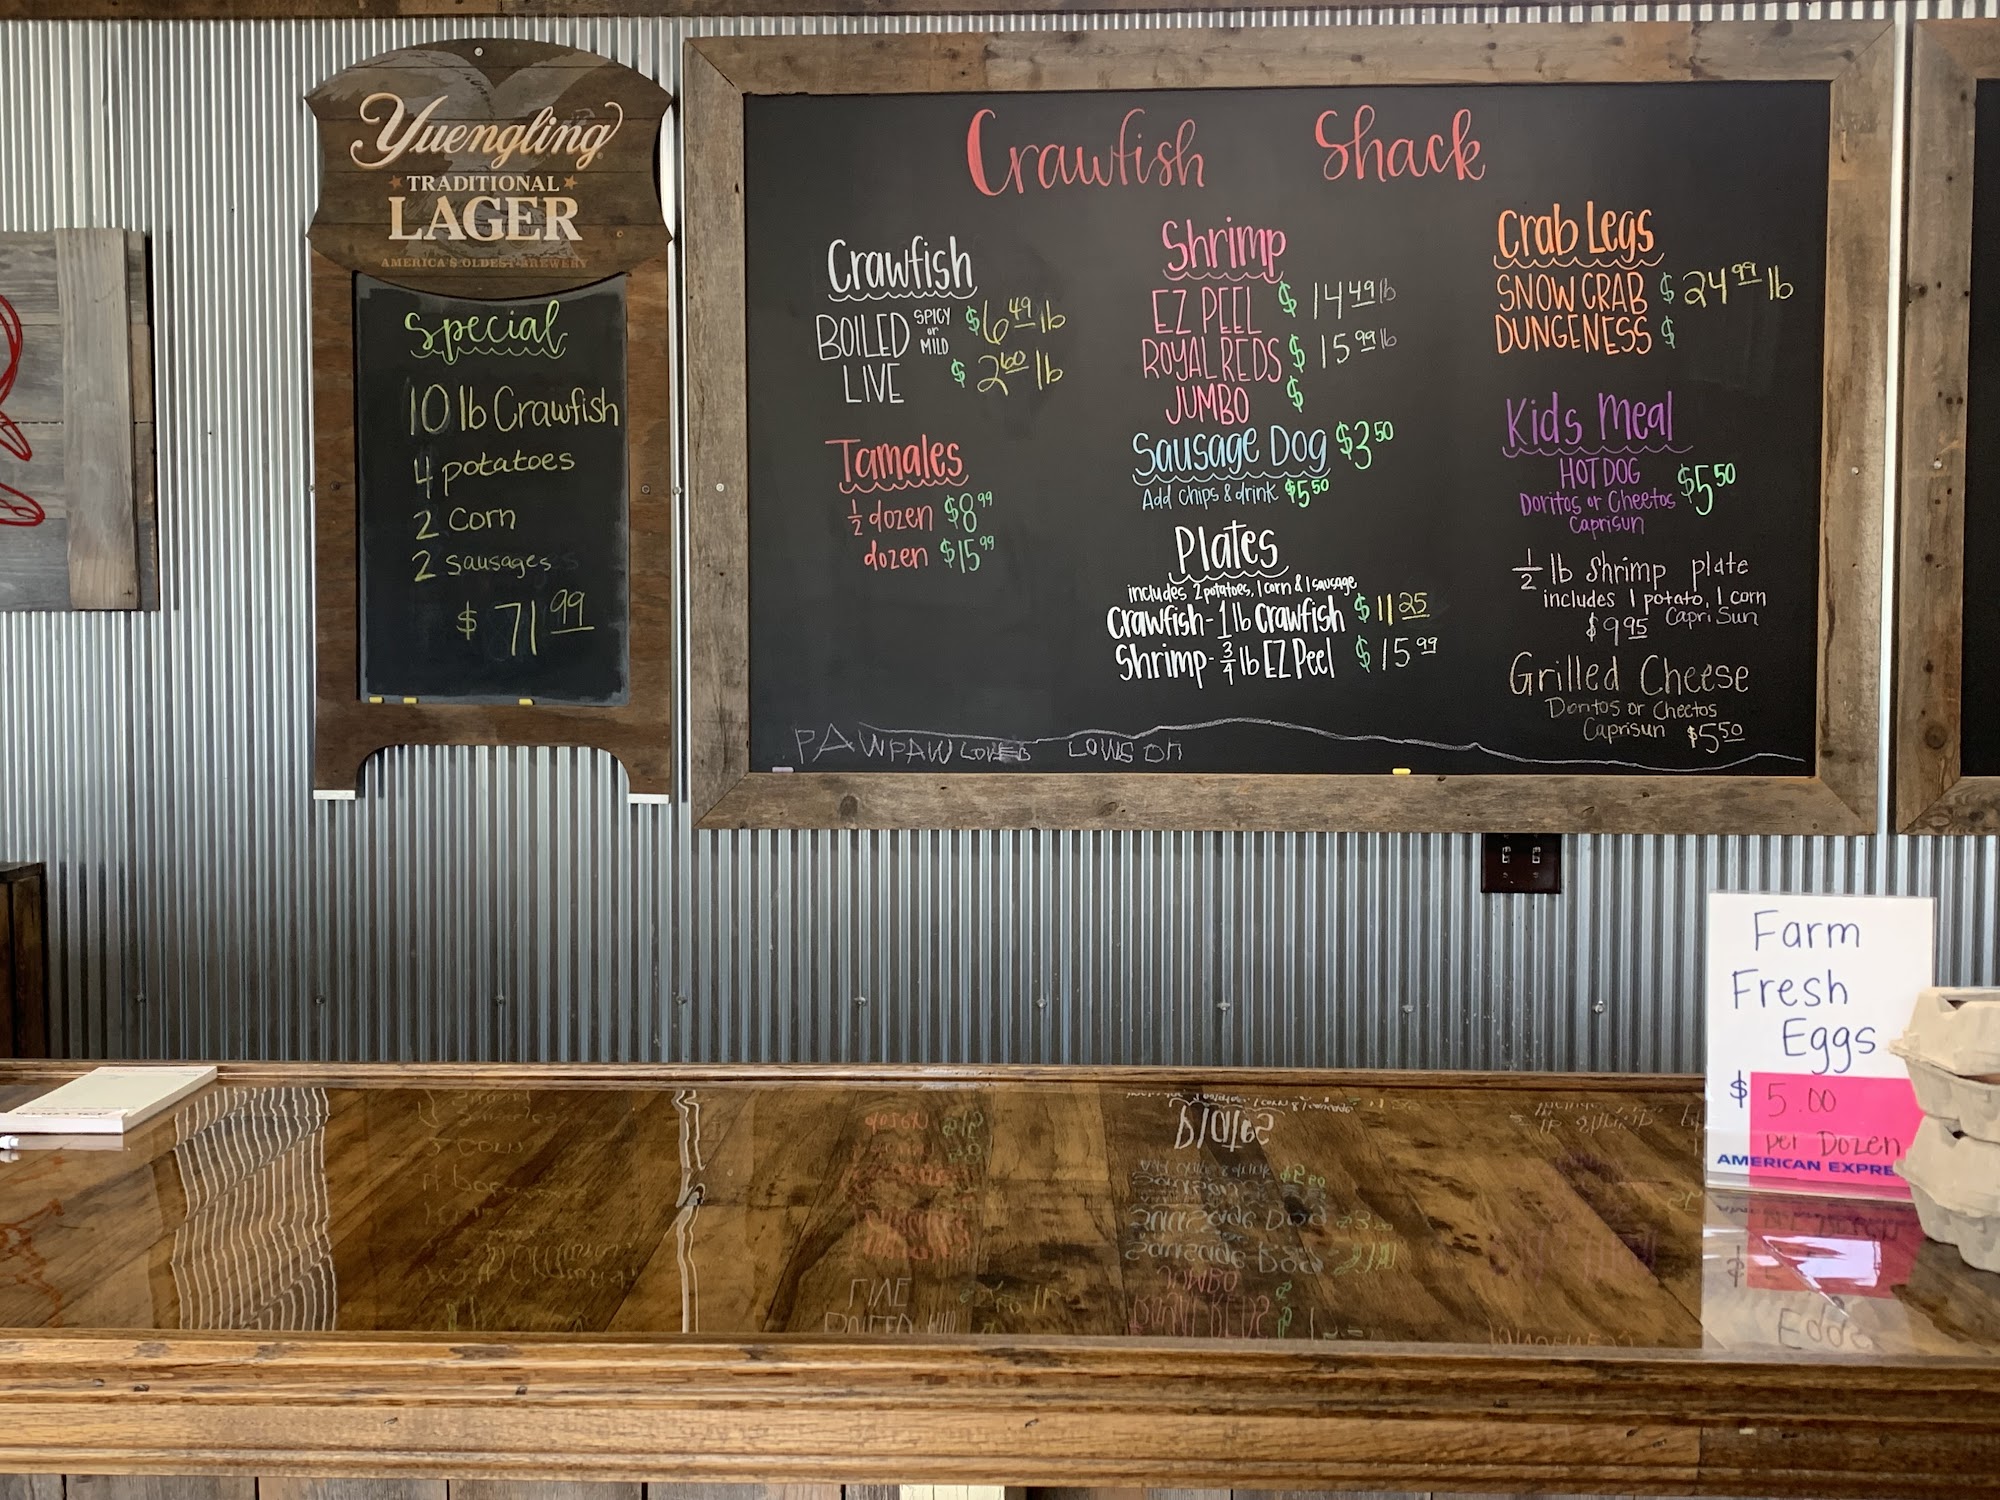 Yuengling
TRADITIONAL
LAGER
AMERICA'S OLDEST BREWERY
Special
10 lb Crawfish
4 potatoes
2 Corn
2 sausages
$ 71.99
Crawfish Shack
Crawfish
BOILED SPICY or MILD $6.49 lb
LIVE $2.60 lb
Tamales
1/2 dozen $8.99
dozen $15.99
Shrimp
EZ PEEL $ 14.49 lb
ROYAL REDS $ 15.99 lb
JUMBO $
Sausage Dog $3.50
Add chips & drink $5.50
Plates
includes 2 potatoes, 1 corn & 1 sausage
Crawfish - 1 lb Crawfish $ 11.25
Shrimp - 3/4 lb EZ Peel $ 15.99
Crab Legs
SNOW CRAB $ 24.99 lb
DUNGENESS $
Kids Meal
HOT DOG $5.50
Doritos or Cheetos
Caprisun
1/2 lb Shrimp plate
includes 1 potato, 1 corn
$9.95 Capri Sun
Grilled Cheese
Doritos or Cheetos
Caprisun $5.50
PAWPAW
Farm
Fresh
Eggs
$ 5.00
per Dozen
AMERICAN EXPRE